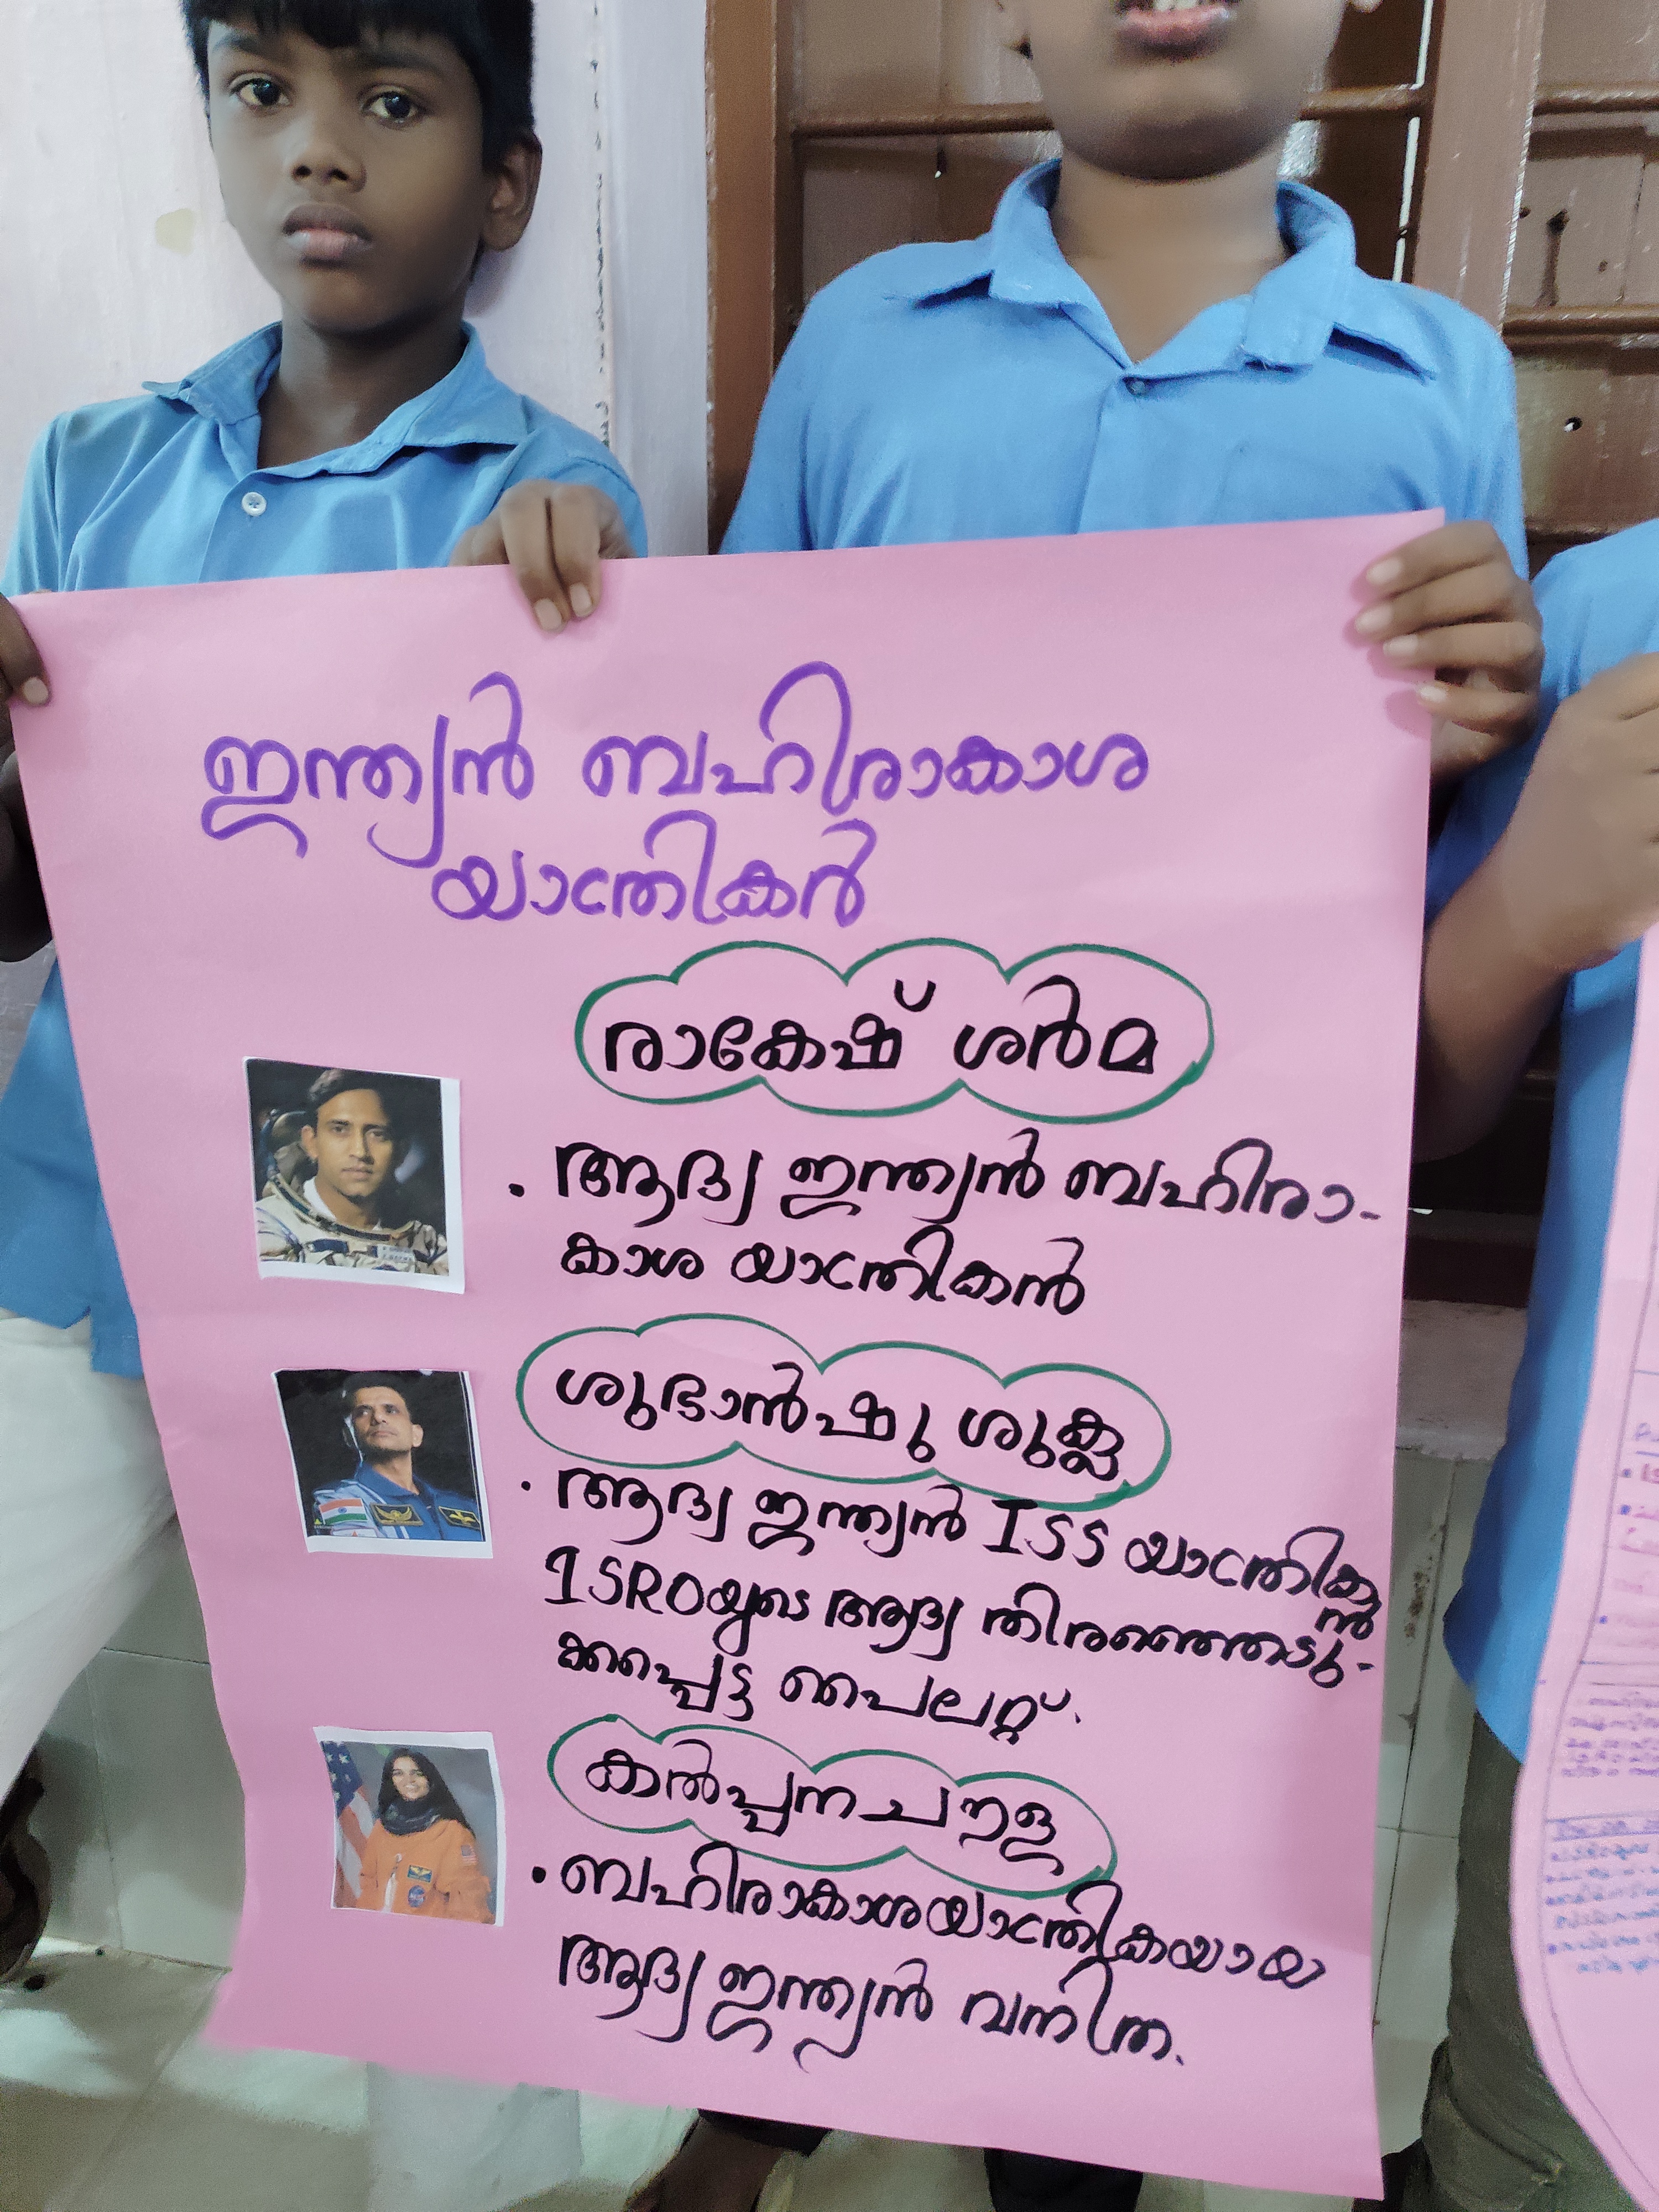 ഇന്ത്യൻ ബഹിരാകാശ
യാത്രികർ
രാകേഷ് ശർമ
. ആദ്യ ഇന്ത്യൻ ബഹിരാ-
കാശ യാത്രികൻ
ശുഭാൻഷു ശുക്ല
. ആദ്യ ഇന്ത്യൻ ISS യാത്രിക
ൻ
ISROയുടെ ആദ്യ തിരഞ്ഞെടു-
ക്കപ്പെട്ട പൈലറ്റ്.
കൽപ്പന ചൗള
. ബഹിരാകാശയാത്രികയായ
ആദ്യ ഇന്ത്യൻ വനിത.